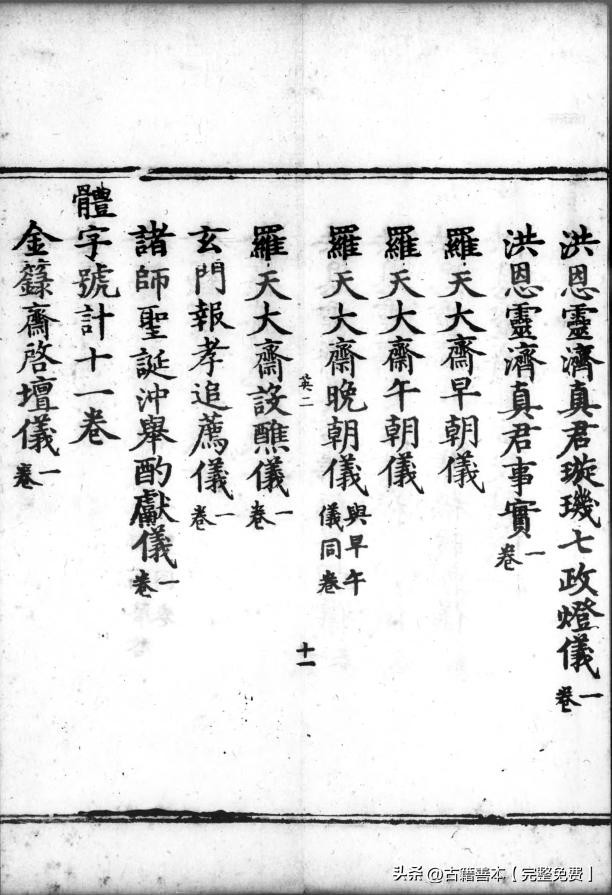 洪恩靈濟真君璇璣七政燈儀一卷
洪恩靈濟真君事實一卷
羅天大齋早朝儀
羅天大齋午朝儀
羅天大齋晚朝儀與早午儀同卷
英二
十一
羅天大齋設醮儀一卷
玄門報孝追薦儀一卷
諸師聖誕沖舉酌獻儀一卷
體字號計十一卷
金籙齋啓壇儀一卷
头条@古籍善本【完整免费】